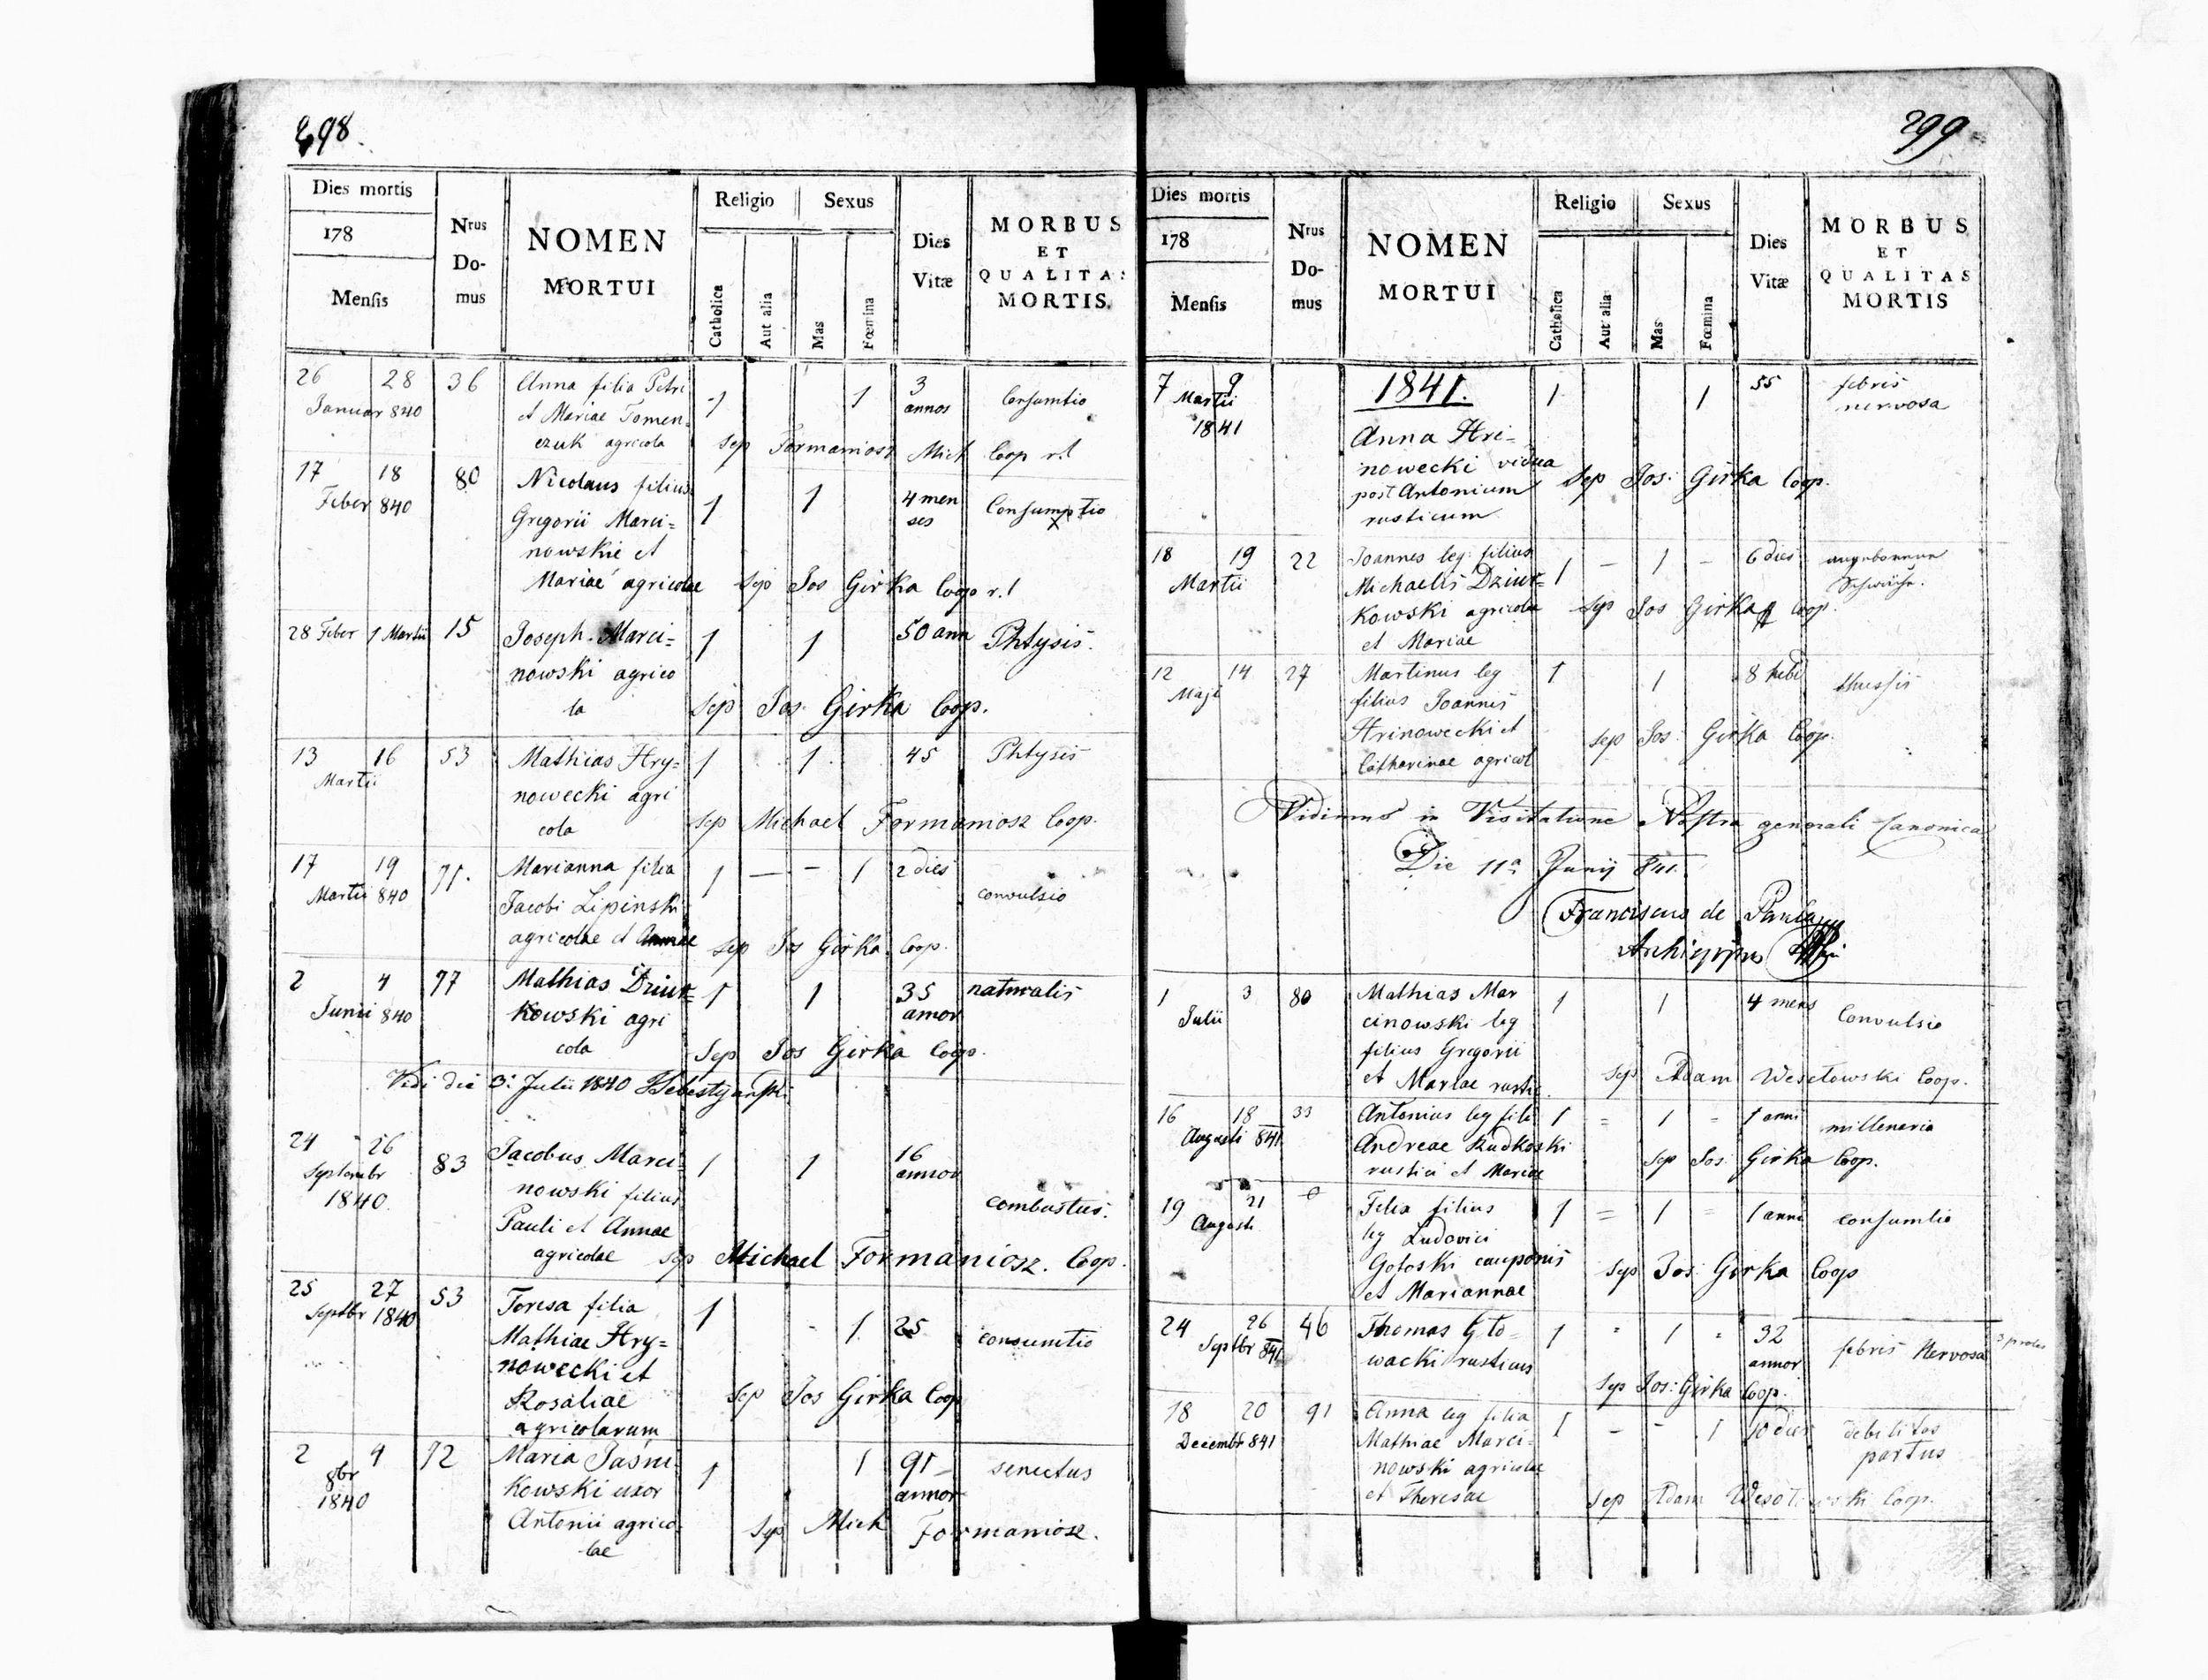 298.
Dies mortis
178
Mensis
Nrus
Do-
mus
NOMEN
MORTUI
Religio
Sexus
Catholica
Aut alia
Mas
Fœmina
Dies
Vitæ
MORBUS
ET
QUALITA:
MORTIS.
26 28 36 Anna filia Petri 1 1 3 Consumtio
Januar 840 et Mariae Tomen- annos
czuk agricola sep Formaniosz Mich Coop r.l
17 18 80 Nicolaus filius 1 1 4 men Consumptio
Feber 840 Gregorii Marci= ses
nowskie et
Mariae agricolae Sep Jos Girka Coop r.l
28 Feber 1 Martii 15 Joseph Marci= 1 1 50 ann Phtysis.
nowski agrico
la Sep Jos Girka Coop.
13 16 53 Mathias Hry= 1 1 45 Phtysis
Martii nowecki agri
cola Sep Michael Formaniosz Coop.
17 19 71. Marianna filia 1 — - 1 2 dies
Martii 840 Jacobi Lipinski convulsio
agricolae et Annae sep Jos Girka Coop.
2 4 77 Mathias Dziur= 1 1 35 naturalis
Junii 840 kowski agri annor
cola Sep Jos Girka Coop.
Vidi die 3: Julii 1840
24 26 83 Jacobus Marci= 1 1 16
Septembr nowski filius annor
1840. Pauli et Annae combustus.
agricolae sep Michael Formaniosz. Coop.
25 27 53 Teresa filia 1 1 25
Septbr 1840 Mathiae Hry= consumtio
nowecki et
Rosaliae Sep Jos Girka Coop
agricolarum
2 4 72 Maria Jasni- 1 1 91 senectus
8br kowski uxor annor
1840 Antonii agrico- Sep Mich Formaniosz.
lae
299
Dies mortis
178
Mensis
Nrus
Do-
mus
NOMEN
MORTUI
Religio
Sexus
Catholica
Aut alia
Mas
Fœmina
Dies
Vitæ
MORBUS
ET
QUALITAS
MORTIS
7 9 1841. 1 1 55 febris
Martii nervosa
1841 Anna Hri-
nowecki vidua
post Antonium Sep Jos: Girka Coop.
rusticum
18 19 22 Joannes leg: filius 1 — 1 - 6 dies angeborenne
Martii Michaelis Dziur= Schwäche.
kowski agricolae Sep Jos Girka Coop.
et Mariae
12 14 27 Martinus leg 1 1 8 hebd thussis
Maji filius Joannis
Hrinowecki et sep Jos: Girka Coop.
Catharinae agricol
Vidimus in Visitatione Nostra generali Canonica
Die 11a Junij 841.
Franciscus de Paula
Archieppus
1 3 80 Mathias Mar 1 1 4 mens Convulsio
Julii cinowski leg
filius Gregorii
et Mariae rustic. Sep Adam Wesełowski Coop.
16 18 33 Antonius leg fili 1 = 1 = 1 anni millenaria
Augusti 841 Andreae Rudkoski
rustici et Mariae Sep Jos: Girka Coop.
19 21 0 Felix filius 1 = 1 = 1 anni consumtio
Augusti leg Ludovici
Gołoski cauponis Sep Jos: Girka Coop
et Mariannae
24 26 46 Thomas Gło- 1 1 32 febris Nervosa
Septbr 841 wacki rusticus annor
Sep Jos: Girka Coop.
18 20 91 Anna leg filia 1 - - 1 10 dies debilitas
Decembr 841 Mathiae Marci- partus
nowski agricolae
et Theresae Sep Adam Wesołowski Coop.